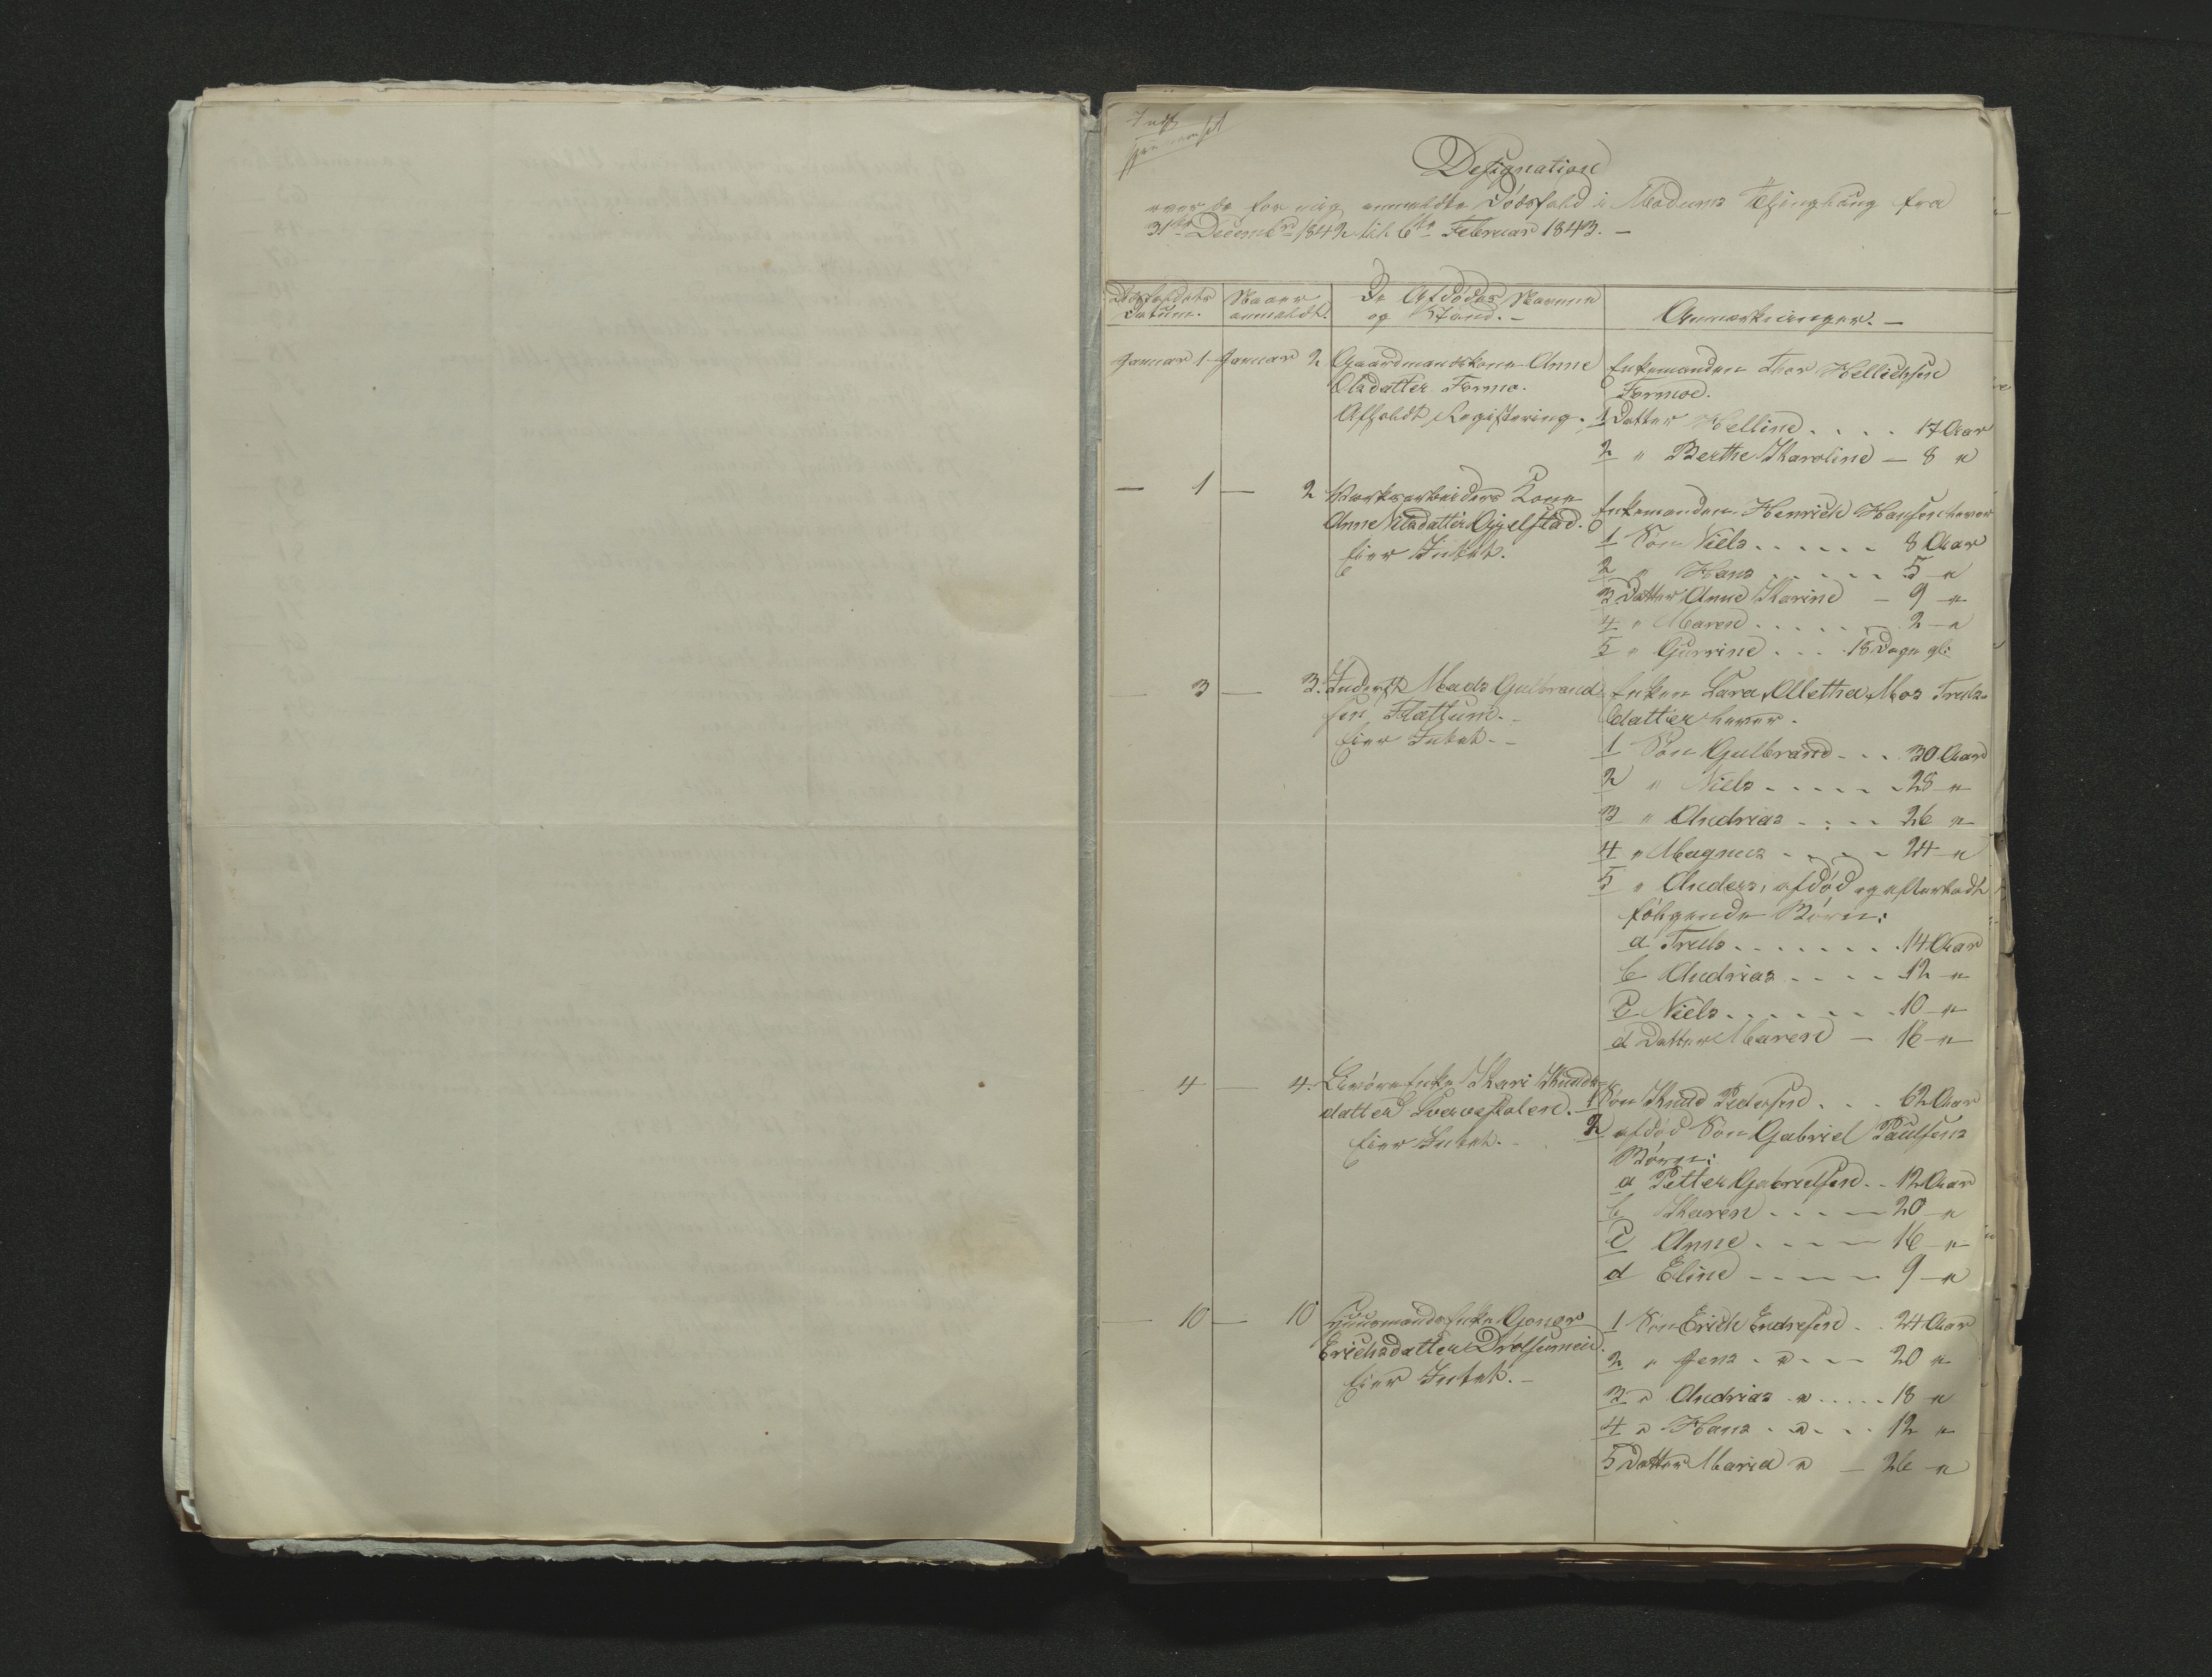 Designation
over de for mig anmeldte Dödsfald i Modums Thinglaug fra
31te Decembr 1842 til 6te Februar 1843. —
Dödsfaldets Datum.
Naar anmeldt.
De Afdödes Navne
og Stand. —
Anmærkninger. —
Januar 1 Januar 2 Gaardmandskone Anne
Olsdatter Formo.
Afholdt Registering.
Enkemanden Thor Hellichsen
Formoe.
1 Datter Helline . . . . 17 Aar
2 " Berthe Karoline — 8 "
— 1 — 2 Værksarbeiders Kone
Anne Nilsdatter Gjelstad.
Eier Intet.
Enkemanden Henrich Hansen haver
1 Sön Niels . . . . . . 8 Aar
2 " Hans . . . . . 5 "
3 Datter Anne Karine — 9 "
4 " Maren . . . . . . 2 "
5 " Gurine . . . 18 Dage gl:
— 3 — 3. Inderst Mads Gulbrand
sen Flattum. —
Eier Intet. —
Enken Lara Aletha Mos Truls-
datter haver.
1 Sön Gulbrand . . . 30 Aar
2 " Niels . . . . . 28 "
3 " Andreas . . . . 26 "
4 " Magnus . . . . 24 "
5 " Anders, afdöd og efterladt
fölgende Börn:
a Truls . . . . . . . 14 Aar
b Andreas . . . . 12 "
c Niels . . . . . . . 10 "
d Datter Maren — 16 "
— 4 — 4. Livöreenke Kari Knuds-
datter
Eier Intet. —
1 Sön Knud Pedersen . . . 62 Aar
2 afdöd Sön Gabriel Paulsens
Börn:
a Petter Gabrielsen . . 12 Aar
b Karen . . . . 20 "
c Anne . . . . 16 "
d Eline . . . . 9 "
— 10 — 10 Huusmandsenke Goner
Erichsdatter
Eier Intet. —
1 Sön Erich Endresen . . 24 Aar
2 " Jens . " . . . 20 "
3 " Andreas " . . . . . 18 "
4 " Hans . " . . . 12 "
5 Datter Maria " — 26 "